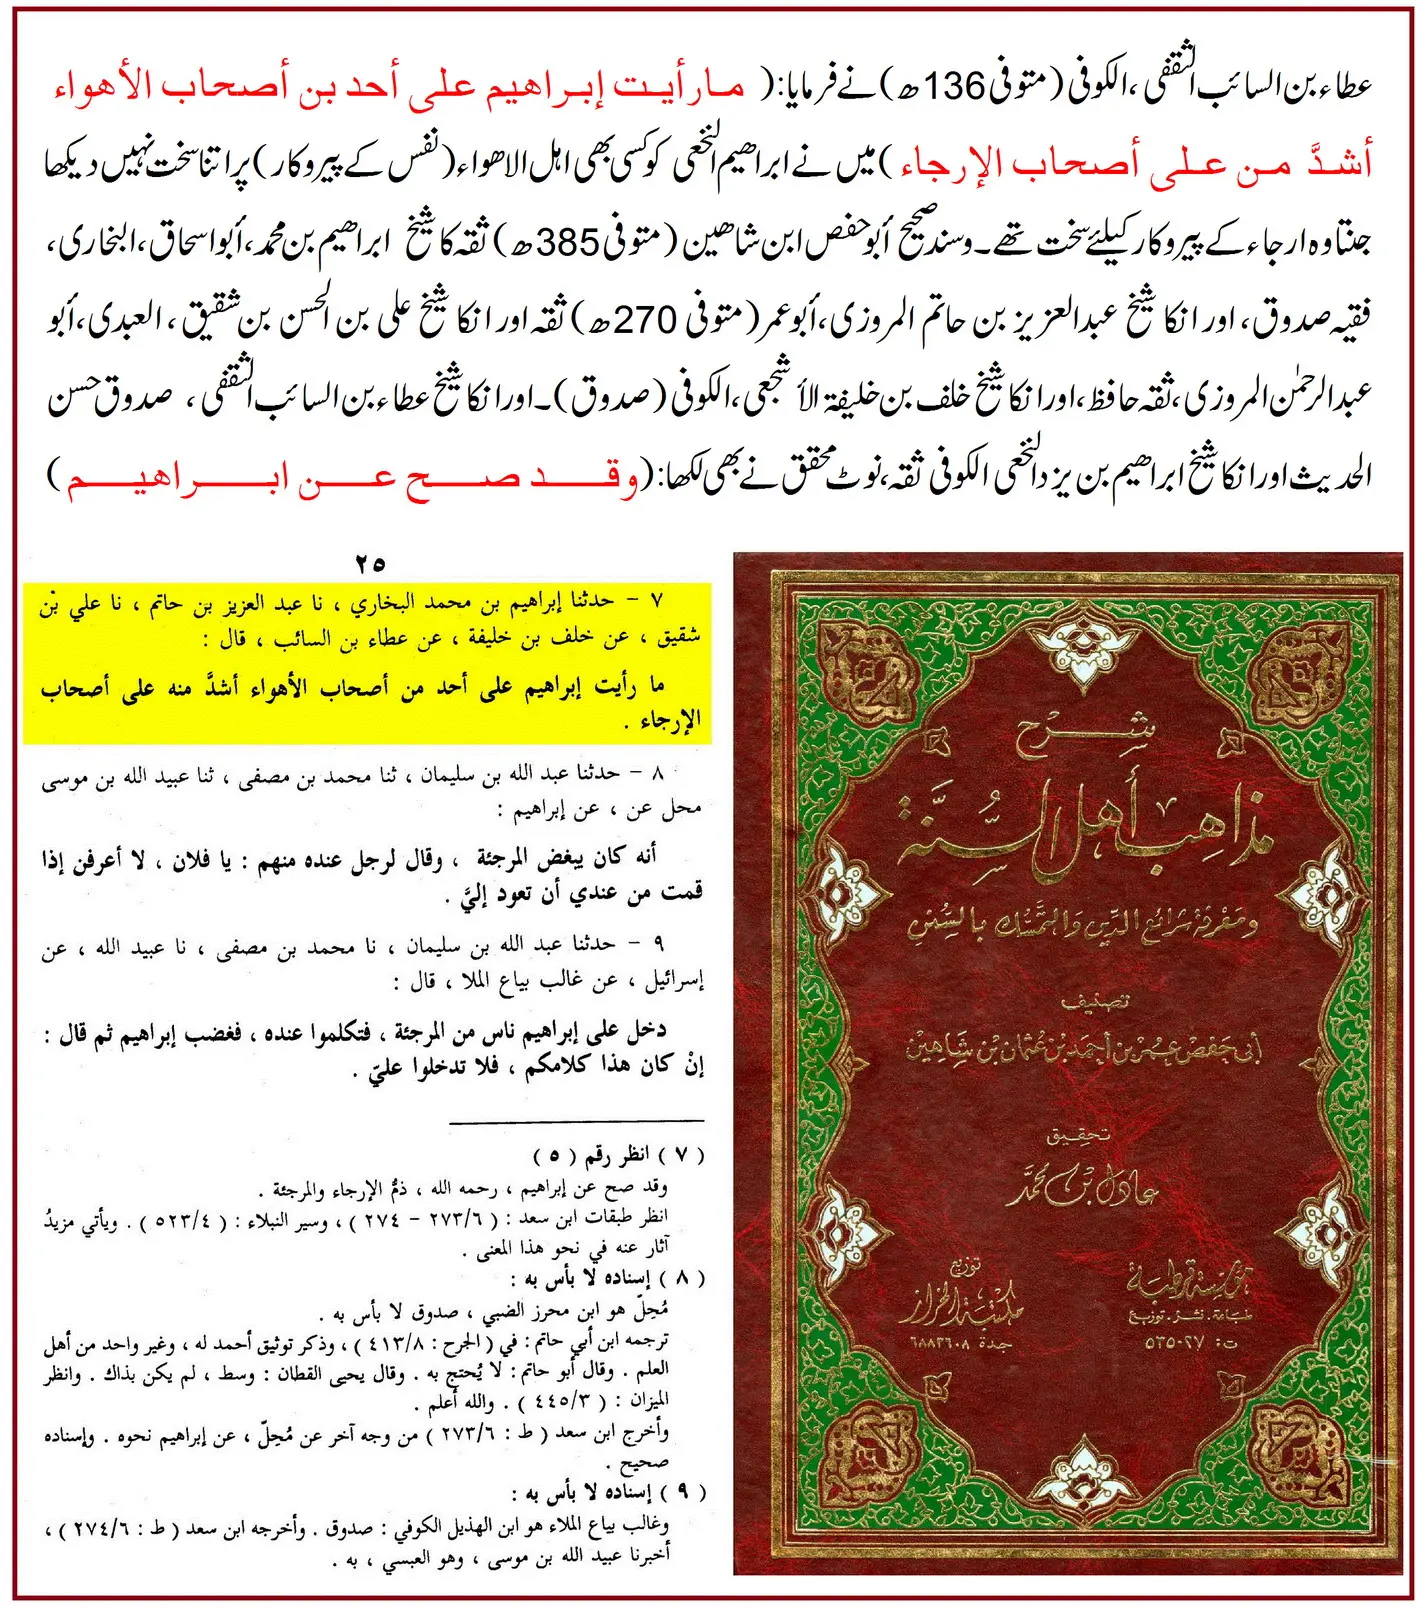 عطاء بن السائب الثقفی ،الکوفی (متوفی 136ھ)نے فرمایا:( مـارأيـت إبـراهيم على أحد بن أصحاب الأهواء
أشـدَّ مـن عـلـى أصحاب الإرجاء )میں نے ابراھیم النخعی کو کسی بھی اھل الاھواء(نفس کے پیروکار)پر اتنا سخت نہیں دیکھا
جتنا وہ ارجاء کے پیروکار کیلئے سخت تھے۔وسند صحیح أبو حفص ابن شاھین (متوفی 385ھ) ثقہ کا شیخ ابراھیم بن محمد،أبو اسحاق،البخاری،
فقیہ صدوق، اور انکا شیخ عبدالعزیز بن حاتم المروزی،أبو عمر(متوفی 270ھ)ثقہ اور انکا شیخ علی بن الحسن بن شقیق ، العبدی،أبو
عبدالرحمٰن المروزی،ثقہ حافظ،اور انکا شیخ خلف بن خلیفۃ الأشجعی،الکوفی (صدوق)۔اور انکا شیخ عطاء بن السائب الثقفی ، صدوق حسن
الحدیث اور انکا شیخ ابراھیم بن یزد النخعی الکوفی ثقہ،نوٹ محقق نے بھی لکھا:(وقـــد صـــح عـــن ابـــراهيـــم)
٢٥
٧ – حدثنا إبراهيم بن محمد البخاري ، نا عبد العزيز بن حاتم ، نا علي بن
شقيق ، عن خلف بن خليفة ، عن عطاء بن السائب ، قال :
ما رأيت إبراهيم على أحد من أصحاب الأهواء أشدَّ منه على أصحاب
الإرجاء .
٨ – حدثنا عبد الله بن سليمان ، ثنا محمد بن مصفى ، ثنا عبيد الله بن موسى
محل عن ، عن إبراهيم :
أنه كان يبغض المرجئة ، وقال لرجل عنده منهم : يا فلان ، لا أعرفن إذا
قمت من عندي أن تعود إليَّ .
٩ – حدثنا عبد الله بن سليمان ، نا محمد بن مصفى ، نا عبيد الله ، عن
إسرائيل ، عن غالب بياع الملا ، قال :
دخل على إبراهيم ناس من المرجئة ، فتكلموا عنده ، فغضب إبراهيم ثم قال :
إنْ كان هذا كلامكم ، فلا تدخلوا عليّ .
( ٧ ) انظر رقم ( ٥ )
وقد صح عن إبراهيم ، رحمه الله ، ذمُّ الإرجاء والمرجئة .
انظر طبقات ابن سعد : ( ٢٧٣/٦ – ٢٧٤ ) ، وسير النبلاء : ( ٥٢٣/٤ ) . ويأتي مزيدُ
آثار عنه في نحو هذا المعنى .
( ٨ ) إسناده لا بأس به :
مُحِلّ هو ابن محرز الضبي ، صدوق لا بأس به .
ترجمه ابن أبي حاتم : في ( الجرح : ٤١٣/٨ ) ، وذكر توثيق أحمد له ، وغير واحد من أهل
العلم . وقال أبو حاتم : لا يُحتج به . وقال يحيى القطان : وسط ، لم يكن بذاك . وانظر
الميزان : ( ٤٤٥/٣ ) . والله أعلم .
وأخرج ابن سعد ( ط : ٢٧٣/٦ ) من وجه آخر عن مُحِلّ ، عن إبراهيم نحوه . وإسناده
صحيح .
( ٩ ) إسناده لا بأس به :
وغالب بياع الملاء هو ابن الهذيل الكوفي : صدوق . وأخرجه ابن سعد ( ط : ٢٧٤/٦ ) ،
أخبرنا عبيد الله بن موسى ، وهو العبسي ، به .
شرح
مذاهب أهل السُّنَّة
ومعرفة شرائع الدين والتمسك بالسنن
تصنيف
أبي حفص عمر بن أحمد بن عثمان بن شاهين
تحقيق
عادل بن محمد
مؤسسة قرطبة
طباعة . نشر . توزيع
ت : ٥٣٥٠٢٧
توزيع
مكتبة الخراز
جدة ٦٨٨٣٦٠٨